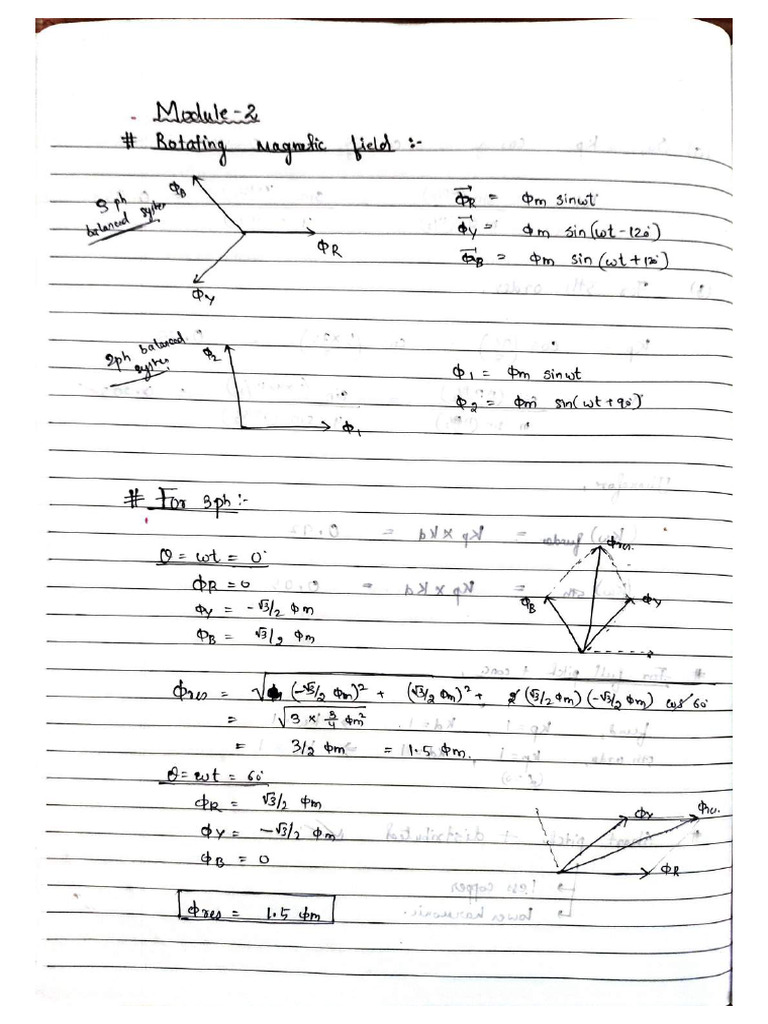 Module-2
# Rotating magnetic field :-
3 ph balanced system
ΦB
ΦR
ΦY
ΦR = Φm sinωt
ΦY = Φm sin(ωt-120°)
ΦB = Φm sin(ωt+120°)
2ph balanced system
Φ2
Φ1
Φ1 = Φm sinωt
Φ2 = Φm sin(ωt+90°)
# For 3ph :-
θ = ωt = 0°
ΦR = 0
ΦY = -√3/2 Φm
ΦB = √3/2 Φm
Φres.
ΦB
ΦY
Φres = √(-√3/2 Φm)² + (√3/2 Φm)² + 2 (√3/2 Φm)(-√3/2 Φm) cos 60
= √3 × 3/4 Φm²
= 3/2 Φm = 1.5 Φm.
θ = ωt = 60°
ΦR = √3/2 Φm
ΦY = -√3/2 Φm
ΦB = 0
ΦY
Φres.
ΦR
Φres = 1.5 Φm